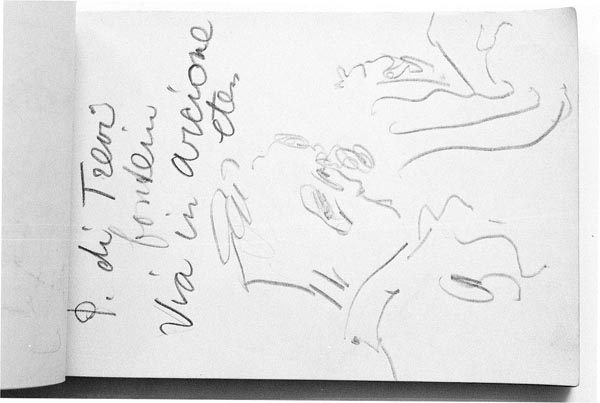 P. di Trevi
fontein
Via in Arcione
eten